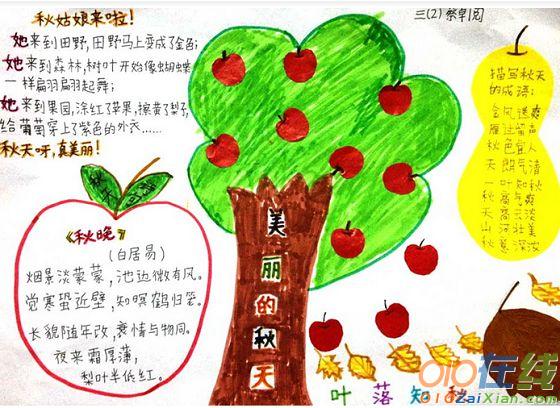 秋姑娘来啦!
她来到田野,田野马上变成了金色;
她来到森林,树叶开始像蝴蝶
一样翩翩起舞;
她来到果园,涂红了苹果,擦黄了梨子,
给葡萄穿上了紫色的外衣……
秋天呀,真美丽!
三(2)
《秋晚》
(白居易)
烟景淡蒙蒙,池边微有风。
觉寒蛩近壁,知暝鹤归笼。
长貌随年改,衰情与物同。
夜来霜厚薄,
梨叶半低红。
美丽的秋天
描写秋天
的成语:
金风送爽
雁过留声
秋色宜人
天朗气清
一叶知秋
秋高气爽
天高云淡
山河壮美
秋意深浓
叶落知秋
010在线
010zaiXian.com